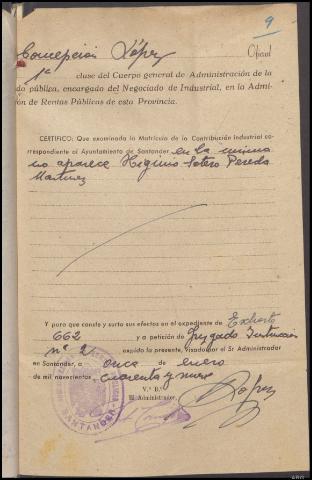 9
Concepción López Oficial
1ª clase del Cuerpo general de Administración de la
do pública, encargado del Negociado de Industrial, en la Admi-
ón de Rentas Públicas de esta Provincia.
CERTIFICO: Que examinada la Matrícula de la Contribución industrial co-
rrespondiente al Ayuntamiento de Santander en la misma
no aparece Higinio Sotero Pereda
Martinez
Y para que conste y surta sus efectos en el expediente de Exhorto
662 y a petición de Juzgado Instrucción
nº 2 expido la presente, Visada por el Sr Administrador
en Santander, a once de enero
de mil novecientos cuarenta y nueve
V.º B.º
El Administrador,
López
SANTANDER